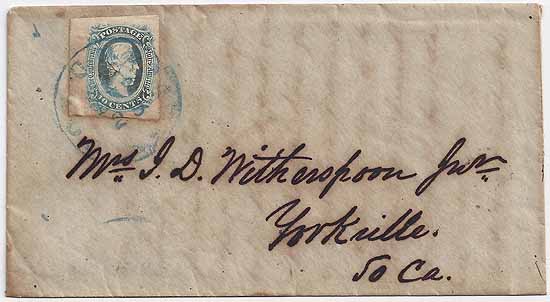 POSTAGE
TEN CENTS
Mrs I. D. Witherspoon Jnr
Yorkville.
So Ca.